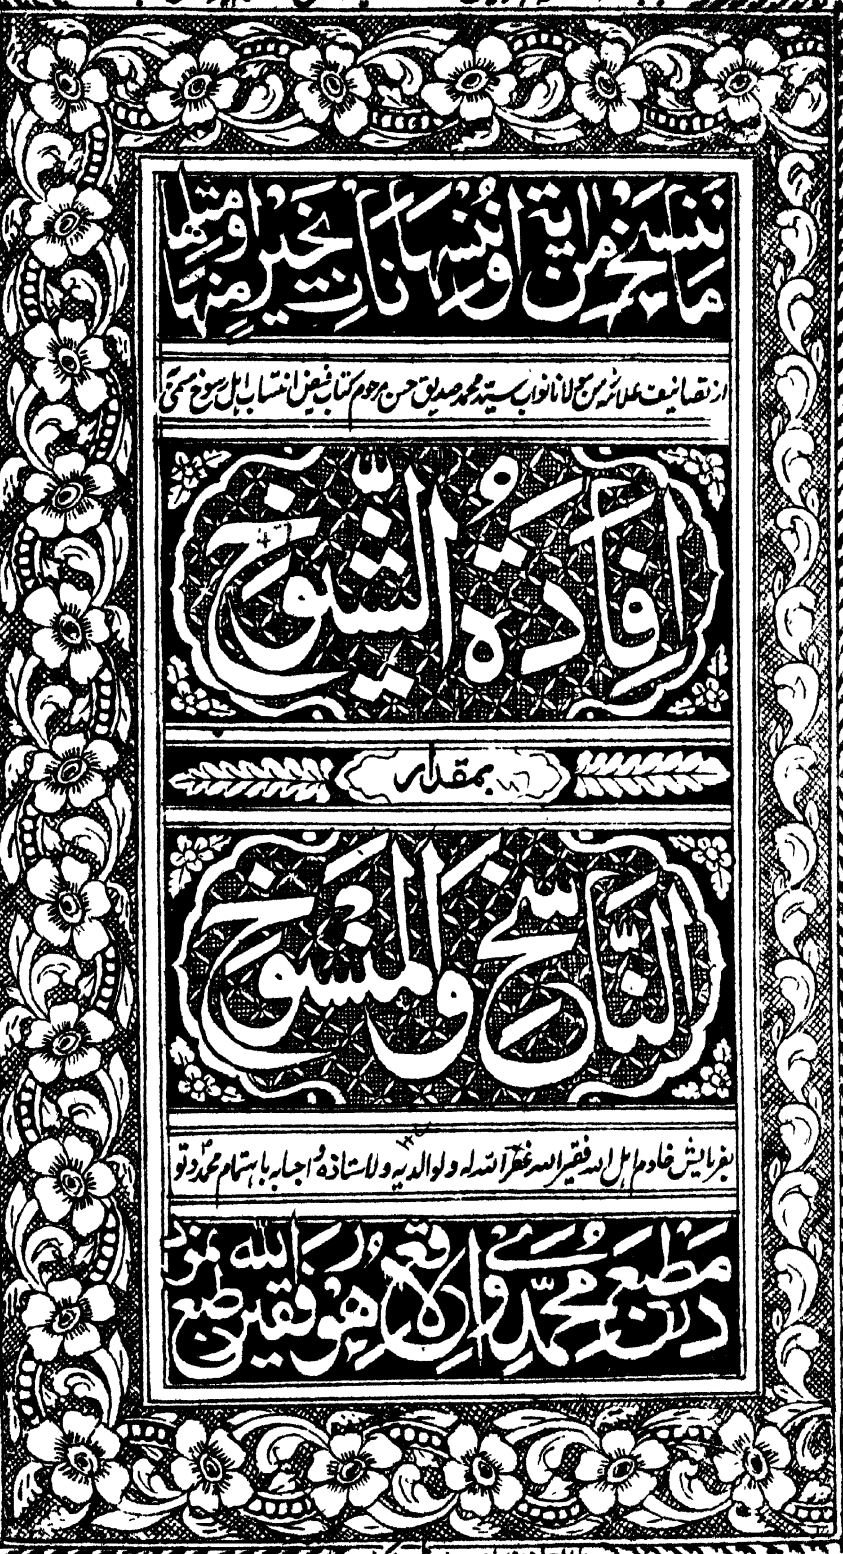 ما ننسخ من اية او ننسها نات بخير منها او مثلها
از تصانیف علامۂ ربیع مولانا نواب سید محمد صدیق حسن مرحوم کتاب فیض انتساب اہل رسوخ مسمی
اِفَادَةُ الشُّیُوْخ
بمقدار
النَّاسِخِ وَالْمَنْسُوْخ
بفرمایش خادم اہل اللہ فقیر اللہ غفر اللہ لہ ولوالدیہ ولاستاذہ و احبابہ باہتمام محمد
در مطبع محمدی واقع لاہور فقیر اللہ طبع نمود